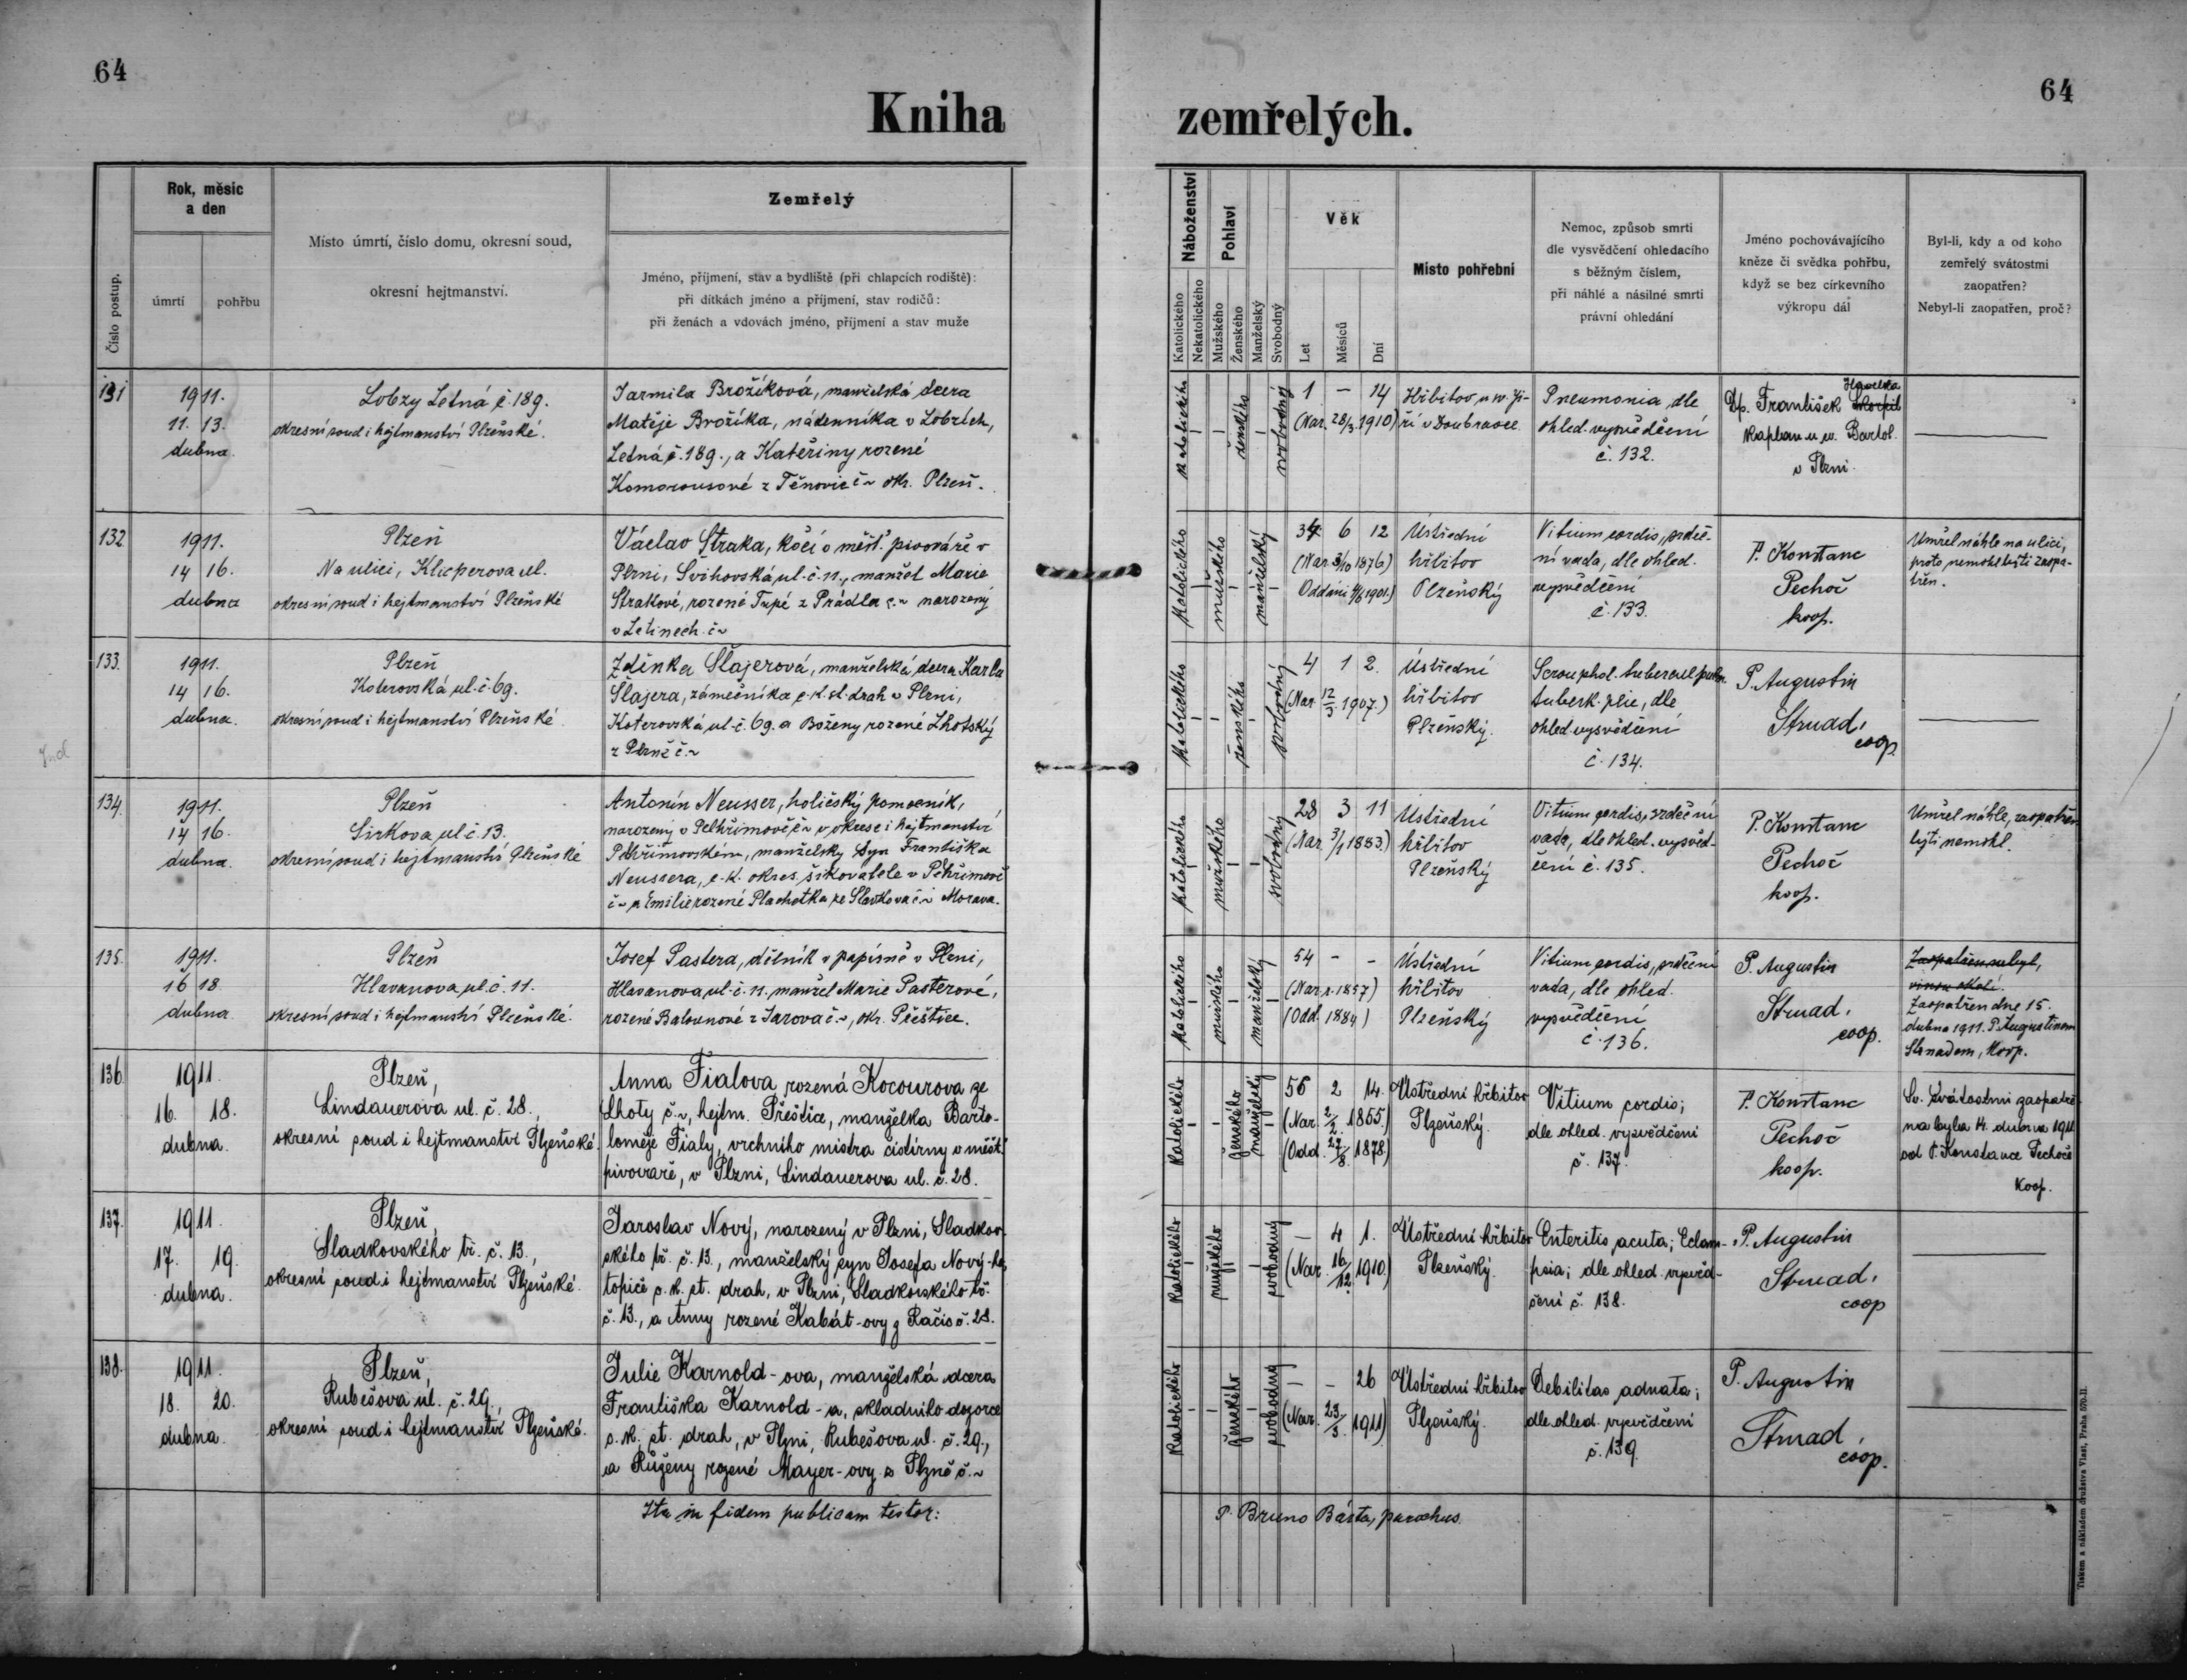 64
64
Kniha zemřelých.
Číslo postup.
Rok, měsíc
a den
úmrtí
pohřbu
Místo úmrtí, číslo domu, okresní soud,
okresní hejtmanství.
Zemřelý
Jméno, příjmení, stav a bydliště (při chlapcích rodiště):
při dítkách jméno a příjmení, stav rodičů:
při ženách a vdovách jméno, příjmení a stav muže
Náboženství
Katolického
Nekatolického
Pohlaví
Mužského
Ženského
Manželský
Svobodný
Věk
Let
Měsíců
Dní
Místo pohřební
Nemoc, způsob smrti
dle vysvědčení ohledacího
s běžným číslem,
při náhlé a násilné smrti
právní ohledání
Jméno pochovávajícího
kněze či svědka pohřbu,
když se bez církevního
výkropu dál
Byl-li, kdy a od koho
zemřelý svátostmi
zaopatřen?
Nebyl-li zaopatřen, proč?
131
1911.
11. 13.
dubna.
Lobzy Letná č. 189.
okresní soud i hejtmanství Plzeňské.
Jarmila Brožíková, manželská dcera
Matěje Brožíka, nádenníka v Lobzích,
Letná č. 189., a Kateřiny rozené
Komorousové z Těnovic č ~ okr. Plzeň.
katolického
ženského
svobodný
1 — 14
(Nar. 28/3. 1910)
Hřbitov u sv. Ji-
ří v Doubravce
Pneumonia, dle
ohled. vysvědčení
č. 132.
Havelka
Dp. František
kaplan u sv. Bartol.
v Plzni.
132
1911.
14 16.
dubna
Plzeň
Na ulici, Klicperova ul.
okresní soud i hejtmanství Plzeňské
Václav Straka, kočí v měšť. pivováře v
Plzni, Švihovská ul. č. 11., manžel Marie
Strakové, rozené Tupé z Prádla č. ~ narozený
v Letinech č ~
katolického
mužského
manželský
34 6 12
(Nar. 3/10 1876)
Oddáni 1901.)
Ústřední
hřbitov
Plzeňský
Vitium cordis, srdeč-
ní vada, dle ohled.
vysvědčení
č. 133.
P. Konstanc
Pechoč
koop.
Umřel náhle na ulici,
proto nemohl býti zaopa-
třen.
133.
1911.
14 16.
dubna.
Plzeň
Koterovská ul. č. 69.
okresní soud i hejtmanství Plzeňské.
Zdeňka Šlajerová, manželská dcera Karla
Šlajera, zámečníka c. k. st. drah v Plzni,
Koterovská ul. č. 69. a Boženy rozené Lhotský
z Plzně č. ~
katolického
ženského
svobodný
4 1 2
(Nar. 12/3. 1907.)
Ústřední
hřbitov
Plzeňský.
Scrouphol. tubercul. pulm.
tuberk. plic, dle
ohled. vysvědčení
č. 134.
P. Augustin
Strnad,
coop.
134.
1911.
14 16.
dubna.
Plzeň
Sirkova ul. č. 13.
okresní soud i hejtmanství Plzeňské
Antonín Neusser, holičský pomocník,
narozený v Pelhřimově č ~ v okrese i hejtmanství
Pelhřimovském, manželský syn Františka
Neussera, c. k. okres. šikovatele v Pelhřimově
č ~ a Emilie rozené Plachetka ze Slavkova č. ~ Morava.
katolického
mužského
svobodný
28 3 11
(Nar. 3/1 1883.)
Ústřední
hřbitov
Plzeňský
Vitium cordis, srdeční
vada, dle ohled. vysvěd-
čení č. 135.
P. Konstanc
Pechoč
koop.
Umřel náhle, zaopatřen
býti nemohl.
135.
1911.
16 18.
dubna.
Plzeň
Hlavanova ul. č. 11.
okresní soud i hejtmanství Plzeňské.
Josef Pastera, dělník v papírně v Plzni,
Hlavanova ul. č. 11. manžel Marie Pasterové,
rozené Balounové z Jarova č. ~, okr. Přeštice.
katolického
mužského
manželský
54 - -
(Nar. r. 1857)
(Odd. 1884)
Ústřední
hřbitov
Plzeňský
Vitium cordis, srdeční
vada, dle ohled.
vysvědčení
č. 136.
P. Augustin
Strnad,
coop.
Zaopatřen nebyl,
Zaopatřen dne 15.
dubna 1911. P. Augustinem
Strnadem, koop.
136.
1911.
16. 18.
dubna.
Plzeň,
Lindauerova ul. č. 28.,
okresní soud i hejtmanství Plzeňské.
Anna Fialova rozená Kocourova ze
Lhoty č. ~, hejtm. Přeštice, manželka Barto-
loměje Fialy, vrchního mistra čistírny v měšť.
pivovaře, v Plzni, Lindauerova ul. č. 28.
katolického
ženského
manželský
56 2 14.
(Nar. 2/2. 1855.)
(Odd. 27/8. 1878.)
Ústřední hřbitov
Plzeňský.
Vitium cordis;
dle ohled. vysvědčení
č. 137.
P. Konstanc
Pechoč
koop.
Sv. svátostmi zaopatře-
na byla 14. dubna 1911
od P. Konstance Pechoče
koop.
137.
1911.
17. 19.
dubna.
Plzeň,
Sladkovského tř. č. 13.,
okresní soud i hejtmanství Plzeňské.
Jaroslav Nový, narozený v Plzni, Sladkov-
ského tř. č. 13., manželský syn Josefa Nový-ho,
topiče c. k. st. drah, v Plzni, Sladkovského tř.
č. 13., a Anny rozené Kabát-ovy z Račic č. 28.
katolického
mužského
svobodný
— 4 1.
(Nar. 16/12. 1910.)
Ústřední hřbitov
Plzeňský.
Enteritis acuta; Eclam-
psia; dle ohled. vysvěd-
čení č. 138.
P. Augustin
Strnad,
coop
138.
1911.
18. 20.
dubna.
Plzeň,
Rubešova ul. č. 29.,
okresní soud i hejtmanství Plzeňské.
Julie Karnold-ova, manželská dcera
Františka Karnold-a, skladního dozorce
c. k. st. drah, v Plzni, Rubešova ul. č. 29.,
a Růženy rozené Mayer-ovy z Plzně č. ~
katolického
ženského
svobodný
— — 26
(Nar. 23/3. 1911)
Ústřední hřbitov
Plzeňský.
Debilitas adnata;
dle ohled. vysvědčení
č. 139.
P. Augustin
Strnad,
coop.
Ita in fidem publicam testor:
P. Bruno Bárta, parochus.
Tiskem a nákladem družstva Vlast, Praha 570-II.